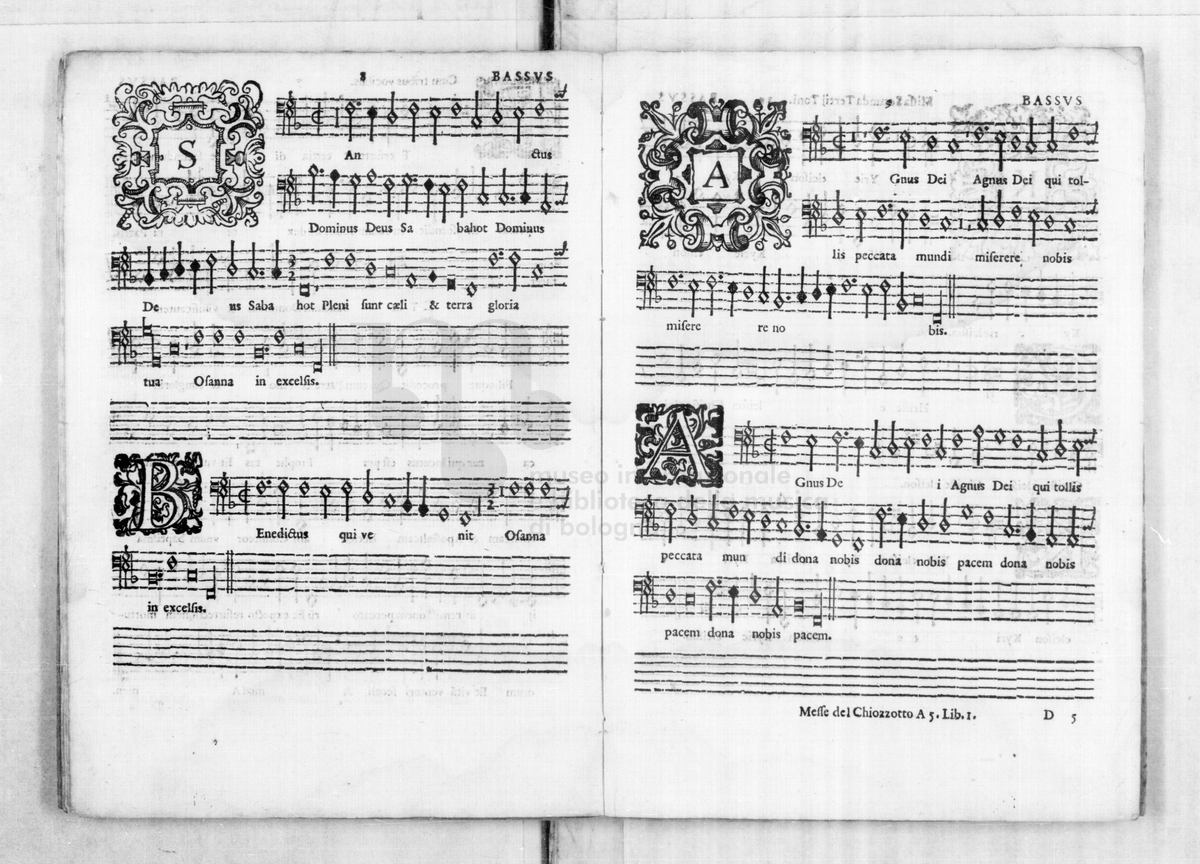 8 BASSVS
S An ctus
Dominus Deus Sa bahot Dominus
De us Saba hot Pleni sunt cæli & terra gloria
tua Osanna in excelsis.
B Enedictus qui ve nit Osanna
in excelsis.
9 BASSVS
A Gnus Dei Agnus Dei qui tol-
lis peccata mundi miserere nobis
misere re no bis.
A Gnus De i Agnus Dei qui tollis
peccata mun di dona nobis dona nobis pacem dona nobis
pacem dona nobis pacem.
Messe del Chiozzotto A 5. Lib. 1. D 5
museo internazionale
e biblioteca della musica
di bologna